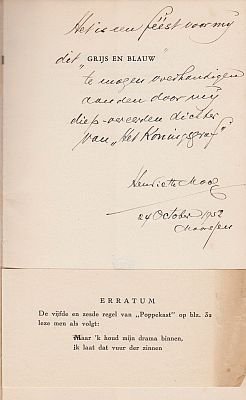 Het is een feest voor mij
dit „GRIJS EN BLAUW"
te mogen overhandigen
aan den door mij
diep-vereerden dichter
van „Het Koningsgraf"
24 October 1952
ERRATUM
De vijfde en zesde regel van „Poppekast” op blz. 32
leze men als volgt:
Maar 'k houd mijn drama binnen,
ik laat dat voor der zinnen